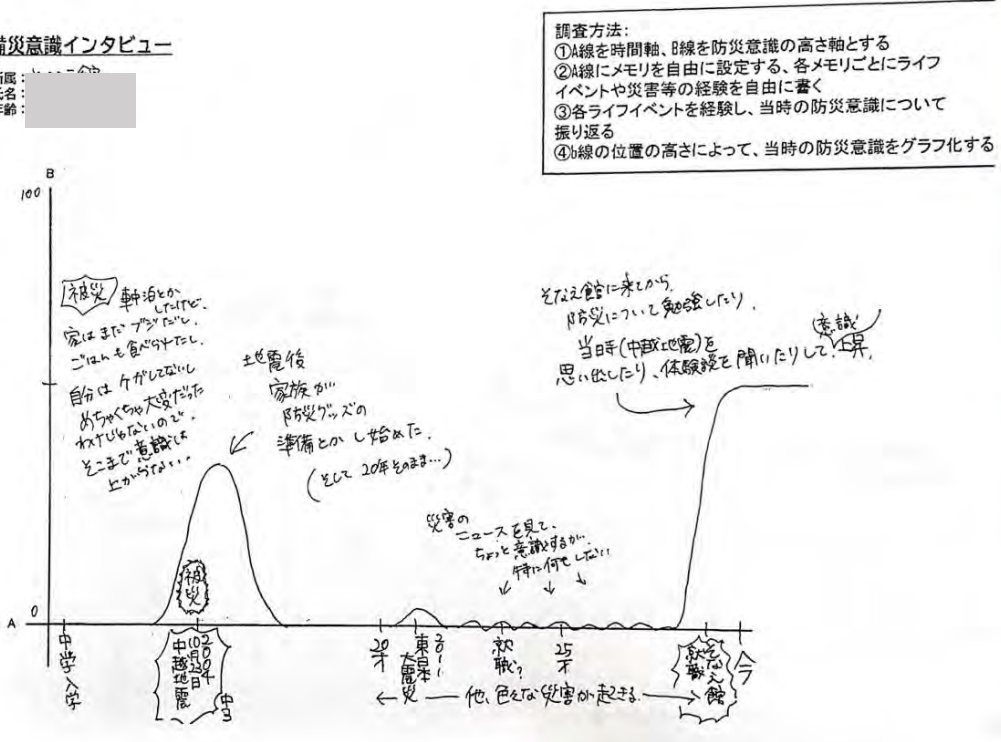 備災意識インタビュー
所属：
氏名：
年齢：
調査方法：
①A線を時間軸、B線を防災意識の高さ軸とする
②A線にメモリを自由に設定する、各メモリごとにライフ
イベントや災害等の経験を自由に書く
③各ライフイベントを経験し、当時の防災意識について
振り返る
④b線の位置の高さによって、当時の防災意識をグラフ化する
B
100
被災 車中泊とか
したけど、
家はまだブジだし、
ごはんも食べられたし、
自分はケガしてないし
めちゃくちゃ大変だった
わけじゃないので、
そこまで意識は
上がらない…
地震後
家族が
防災グッズの
準備とかし始めた。
(そして20年そのまま…)
災害の
ニュースを見て、
ちょっと意識するが、
特に何もしない
そなえ館に来てから、
防災について勉強したり、
当時(中越地震)を
思い出したり、体験談を聞いたりして、意識上昇。
被災
A
0
中学入学
2004
10月23日
中越地震
中3
20才
2011
東日本
大震災
就職?
25才
他、色々な災害が起きる
そなえ館
就職
イマ